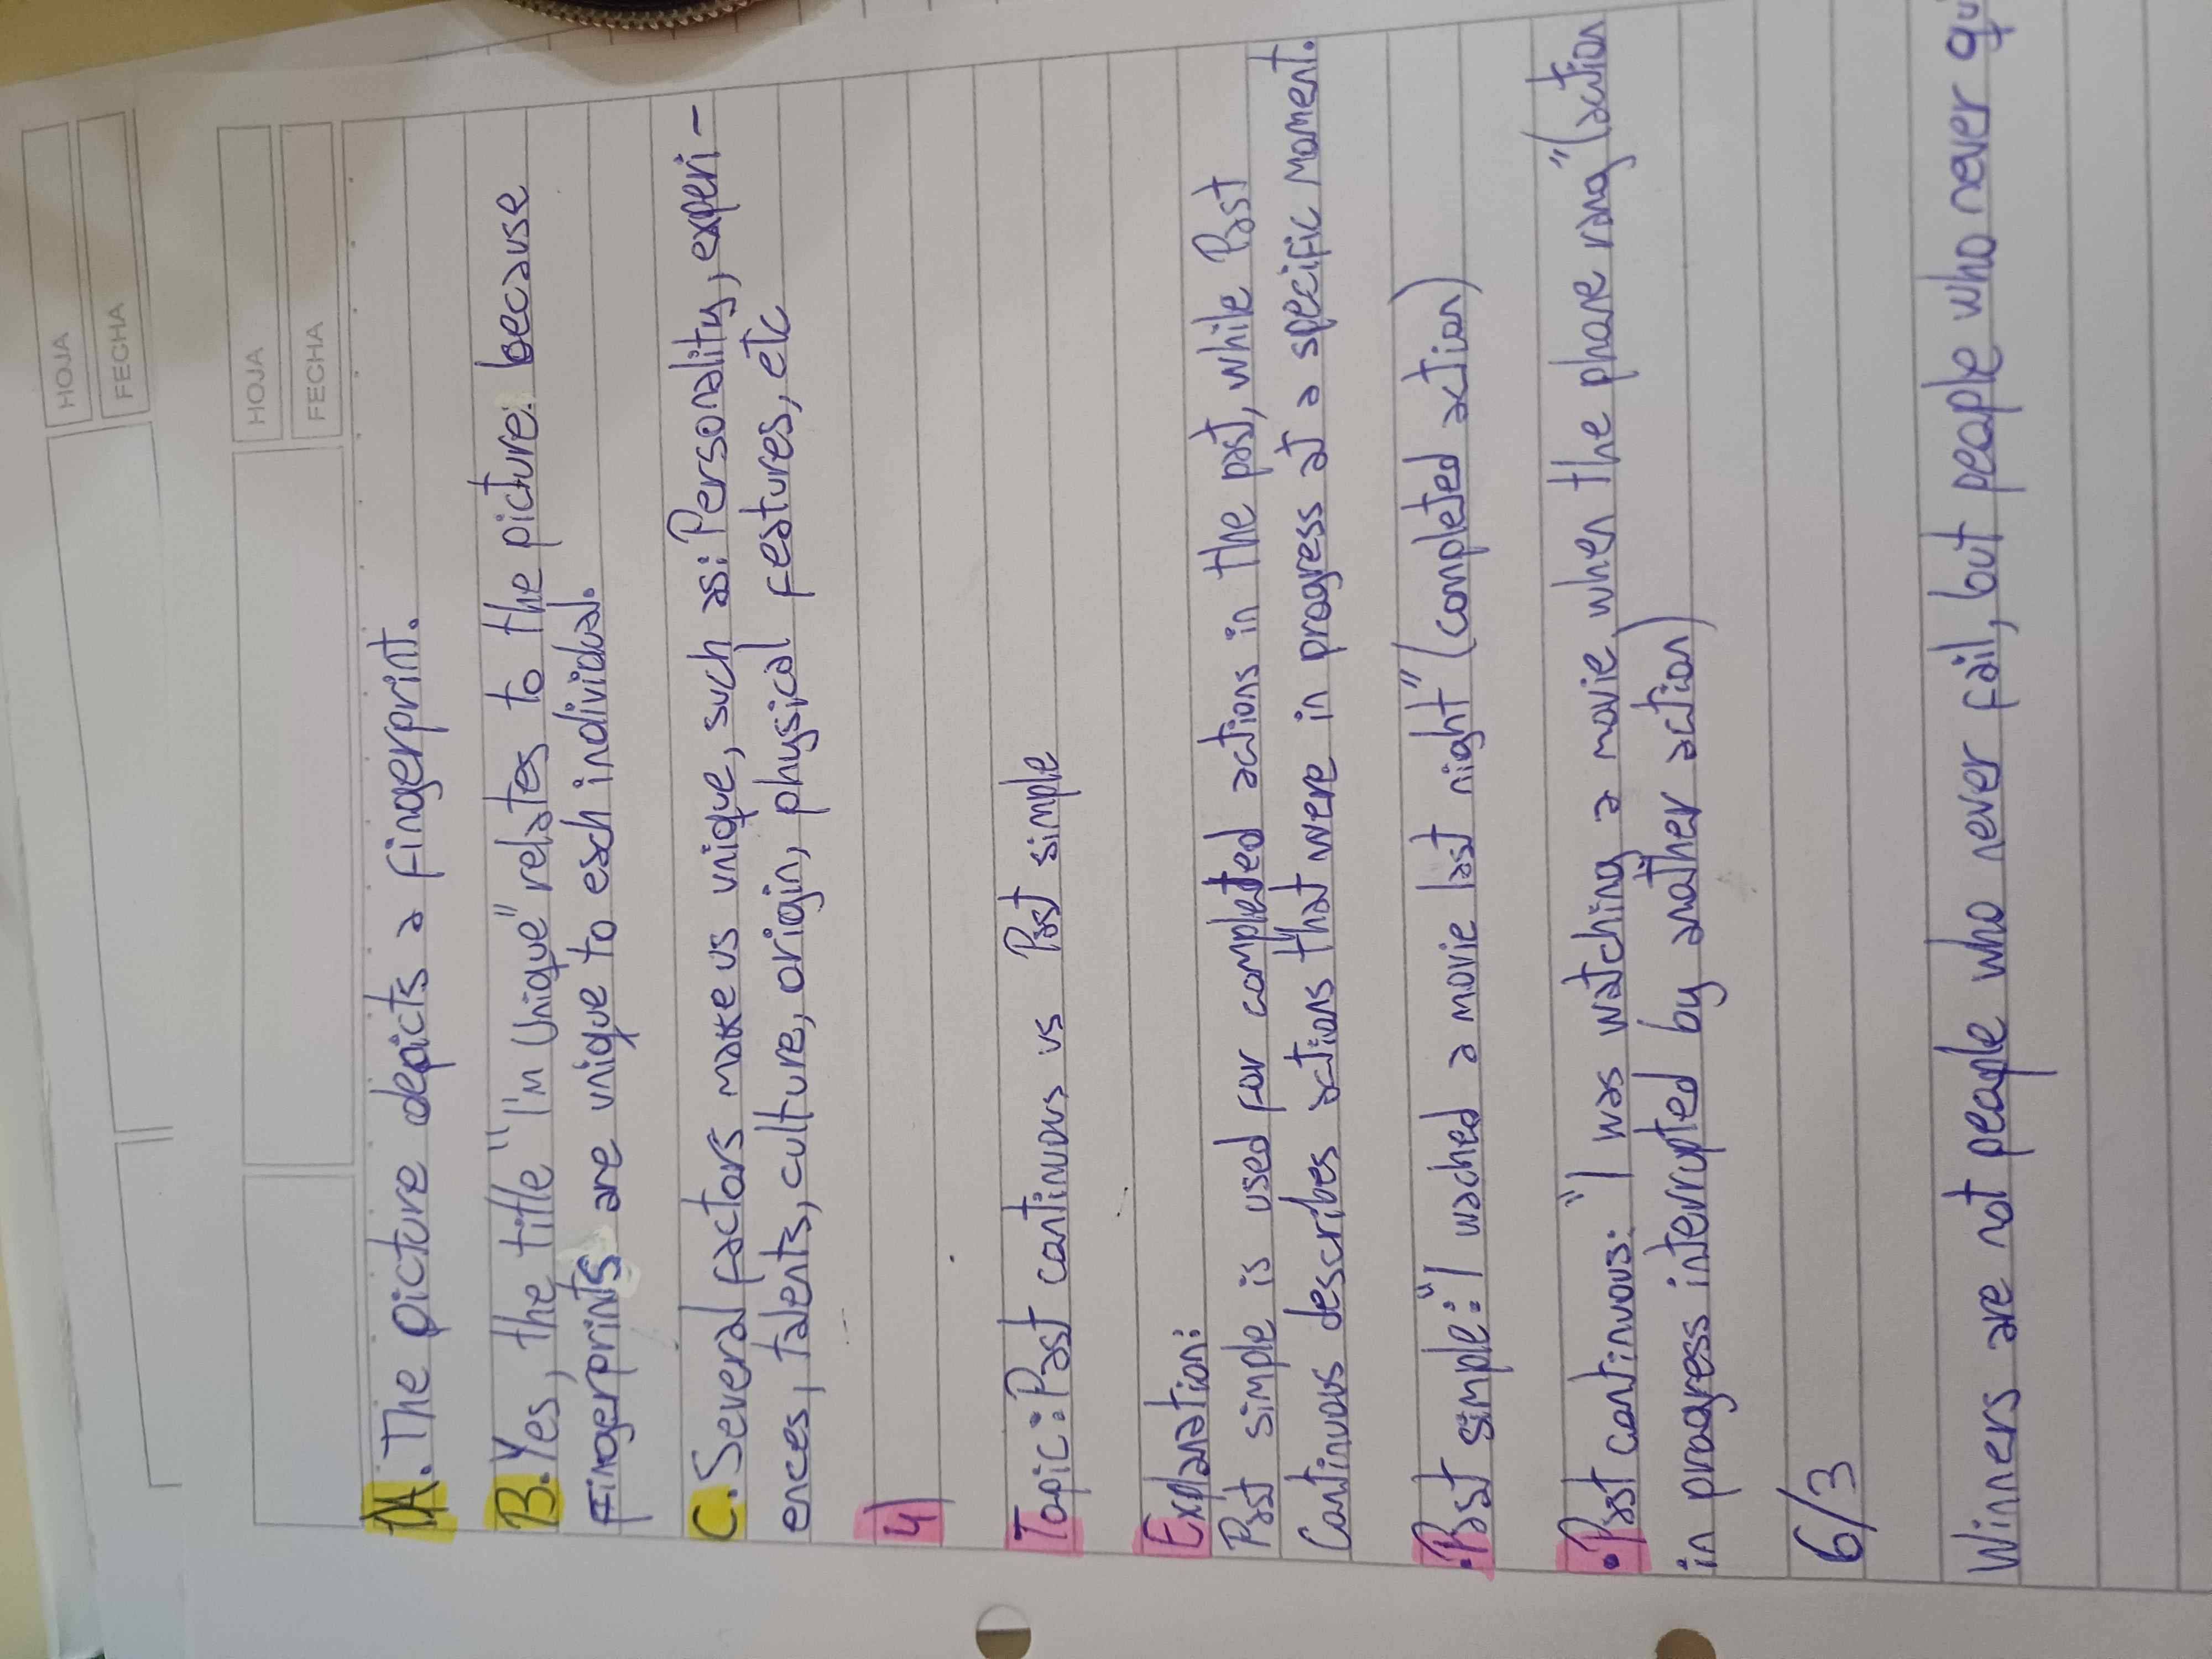 HOJA
FECHA
HOJA
FECHA
A. The picture depicts a fingerprint.
B. Yes, the title "I'm Unique" relates to the picture because
Fingerprints are unique to each individual.
C. Several factors make us unique, such as: Personality, experi-
ences, talents, culture, origin, physical features, etc
4)
Topic: Past continuous vs Past simple
Explanation:
Past simple is used for completed actions in the past, while Past
Continuous describes actions that were in progress at a specific moment.
•Past simple: "I wached a movie last night" (completed action)
•Past continuous: "I was watching a movie when the phone rang" (action
in progress interrupted by another action)
6/3
Winners are not people who never fail, but people who never qui